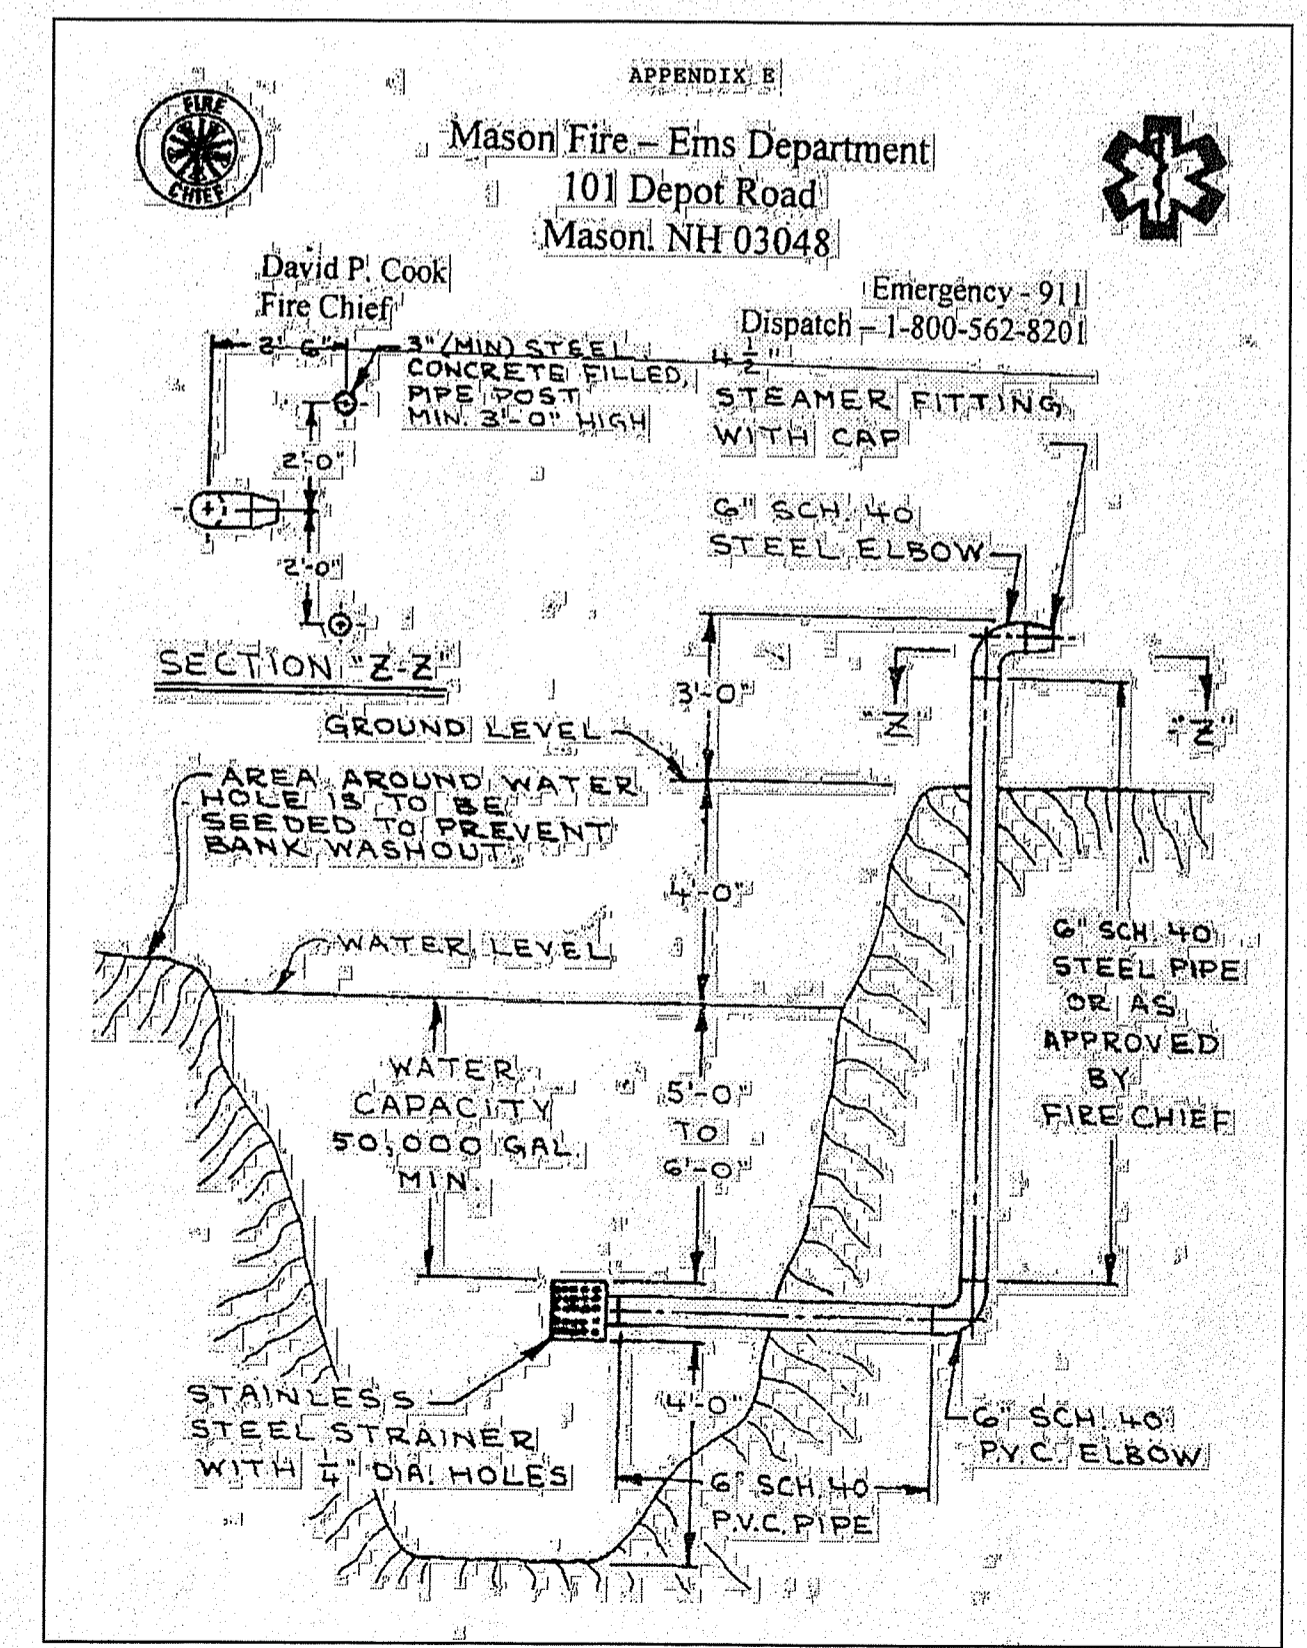 APPENDIX E
FIRE
CHIEF
Mason Fire – Ems Department
101 Depot Road
Mason, NH 03048
David P. Cook
Fire Chief
Emergency - 911
Dispatch – 1-800-562-8201
2'-6"
3" (MIN) STEEL
CONCRETE FILLED,
PIPE POST
MIN. 3'-0" HIGH
4 1/2"
STEAMER FITTING
WITH CAP
2'-0"
2'-0"
6" SCH. 40
STEEL ELBOW
SECTION "Z-Z"
3'-0"
"Z"
"Z"
GROUND LEVEL
AREA AROUND WATER
HOLE IS TO BE
SEEDED TO PREVENT
BANK WASHOUT.
4'-0"
WATER LEVEL
6" SCH. 40
STEEL PIPE
OR AS
APPROVED
BY
FIRE CHIEF
WATER
CAPACITY
50,000 GAL.
MIN.
5'-0"
TO
6'-0"
STAINLESS
STEEL STRAINER
WITH 1/4" DIA. HOLES
4'-0"
6" SCH. 40
P.V.C. ELBOW
6" SCH. 40
P.V.C. PIPE